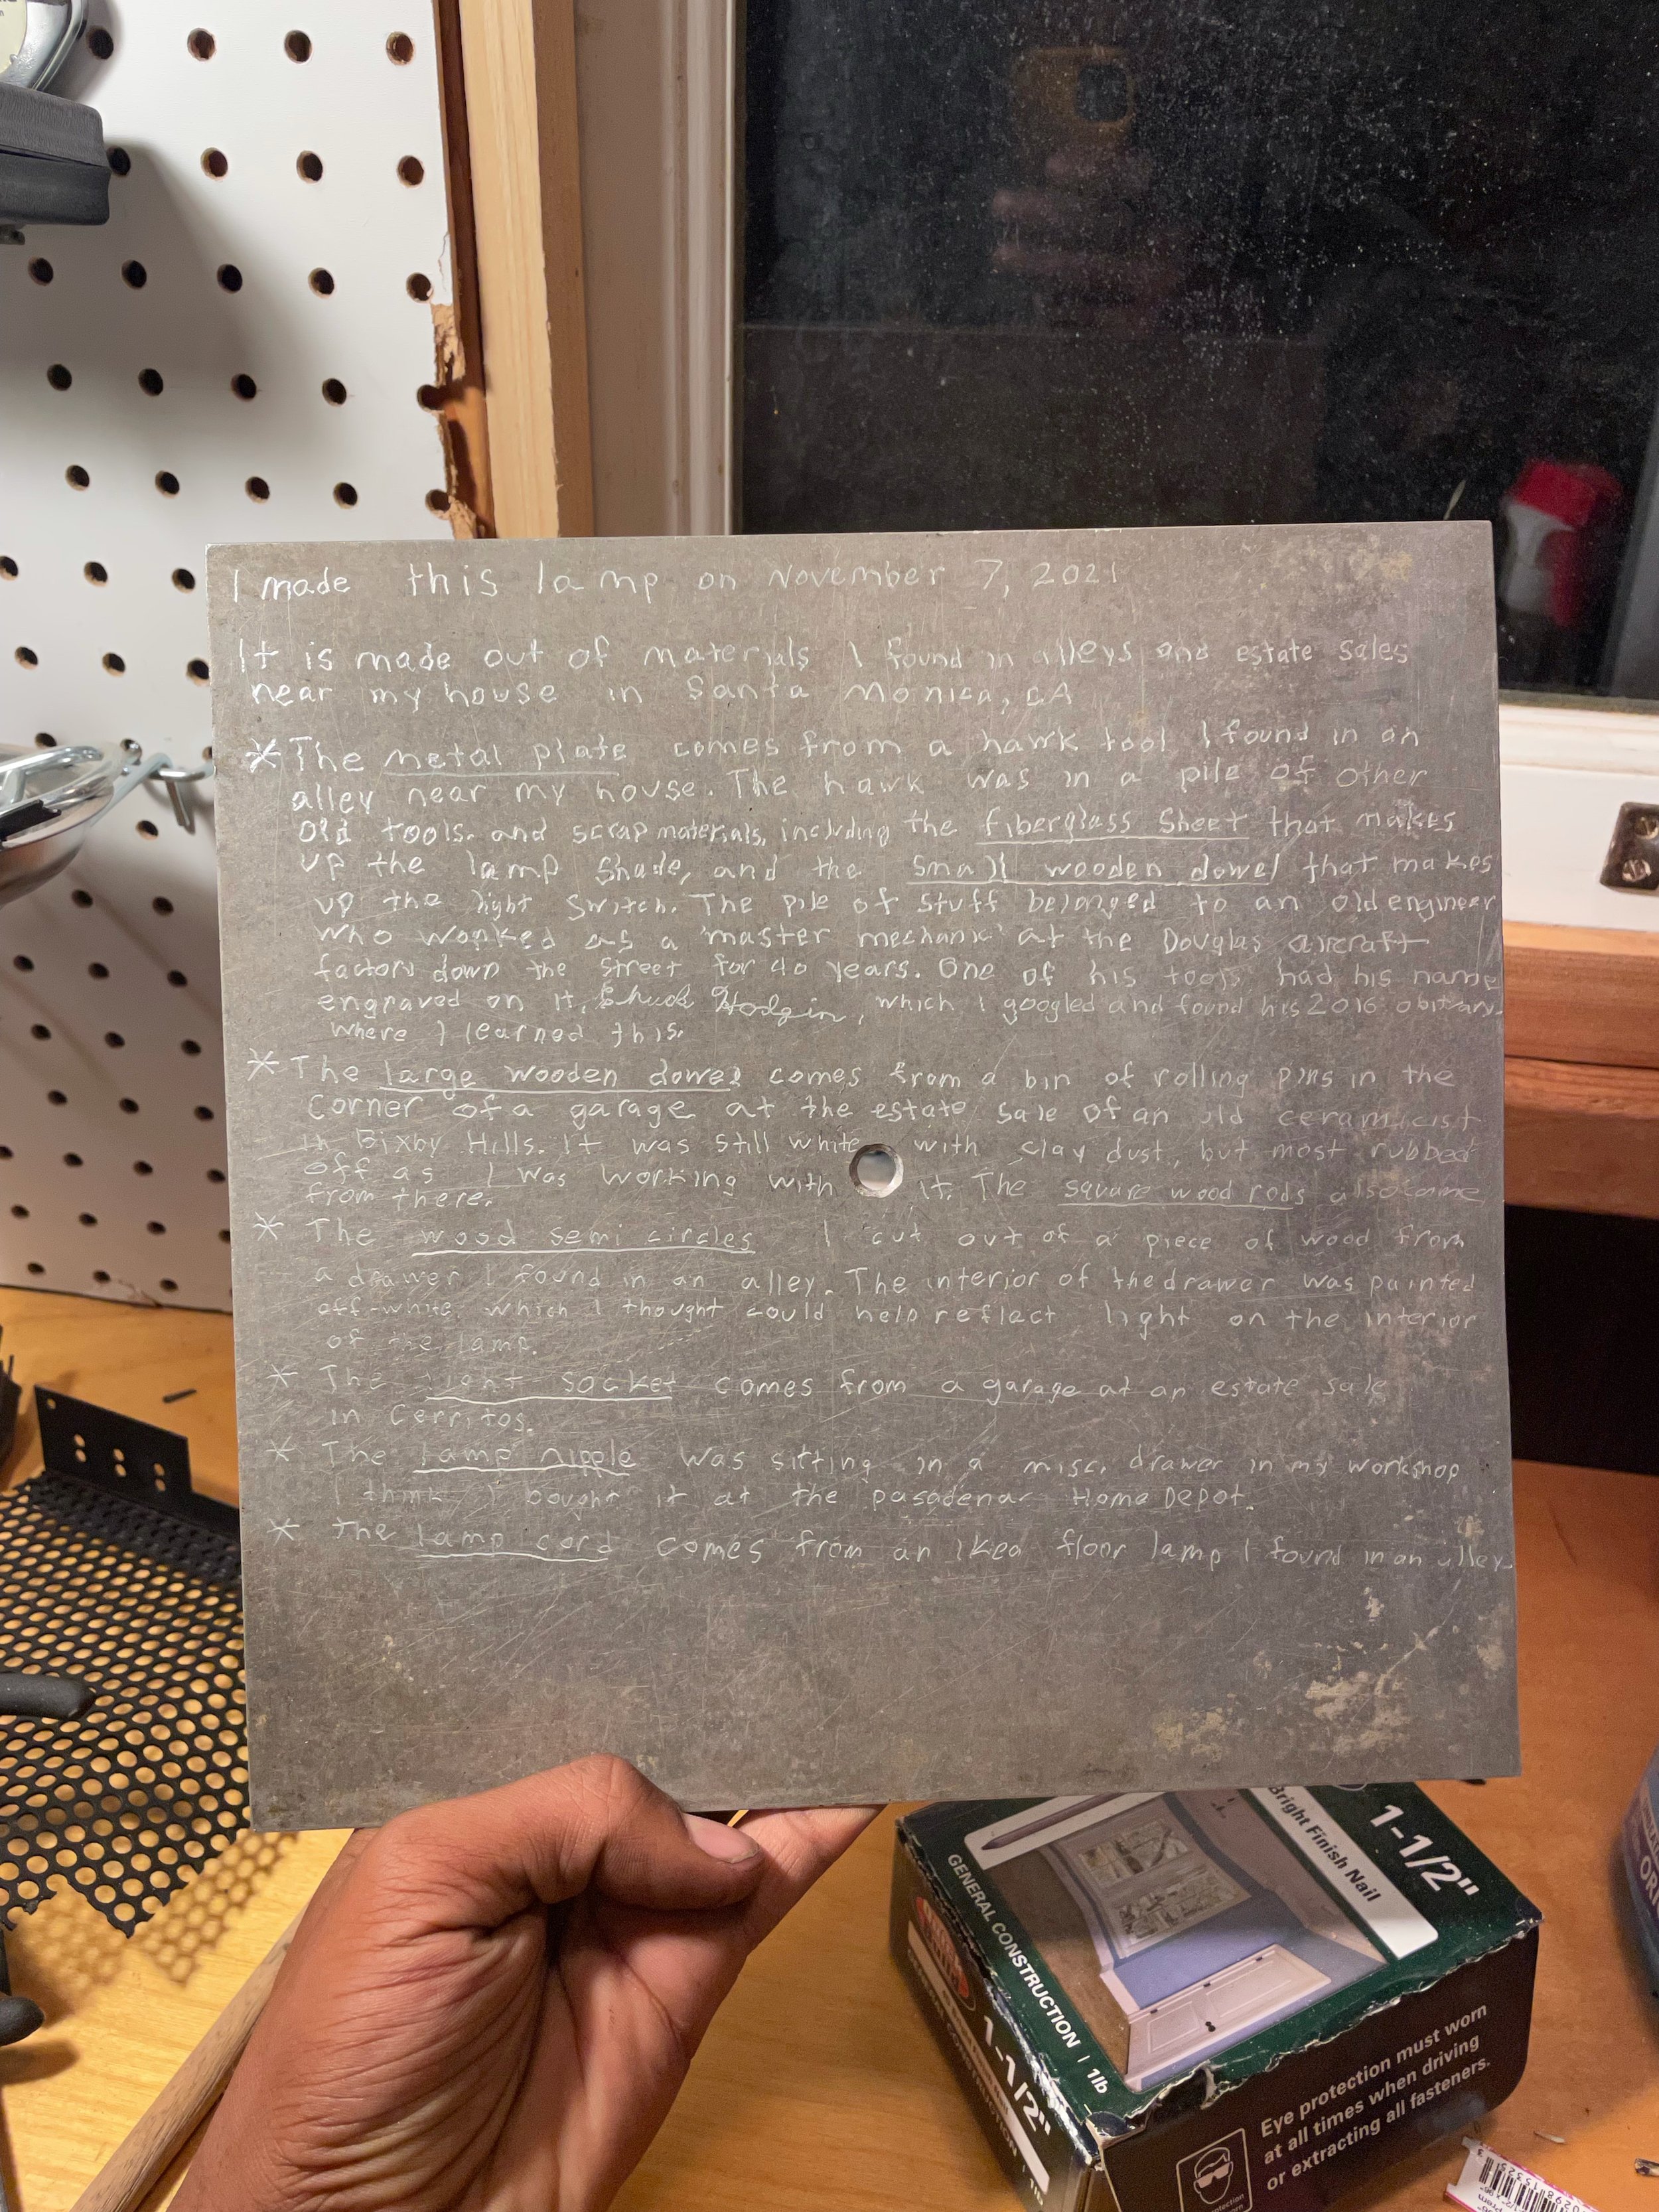 I made this lamp on November 7, 2021
It is made out of materials I found in alleys and estate sales
near my house in Santa Monica, CA
* The metal plate comes from a hawk tool I found in an
alley near my house. The hawk was in a pile of other
old tools. and scrap materials, including the fiberglass sheet that makes
up the lamp shade, and the small wooden dowel that makes
up the light switch. The pile of stuff belonged to an old engineer
who worked as a "master mechanic" at the Douglas aircraft
factory down the street for 40 years. One of his tools had his name
engraved on it, Chuck Hodgin, which I googled and found his 2016 obituary
where I learned this.
* The large wooden dowel comes from a bin of rolling pins in the
corner of a garage at the estate sale of an old ceramicist
in Bixby Hills. It was still white with clay dust, but most rubbed
off as I was working with it. The square wood rods also came
from there.
* The wood semi circles I cut out of a piece of wood from
a drawer I found in an alley. The interior of the drawer was painted
off-white, which I thought could help reflect light on the interior
of the lamp.
* The light socket comes from a garage at an estate sale
in Cerritos.
* The lamp nipple was sitting in a misc. drawer in my workshop
I think I bought it at the pasadena Home Depot.
* The lamp cord comes from an Ikea floor lamp I found in an alley.
1-1/2"
Bright Finish Nail
GENERAL CONSTRUCTION | 1lb
1-1/2"
Eye protection must worn
at all times when driving
or extracting all fasteners.